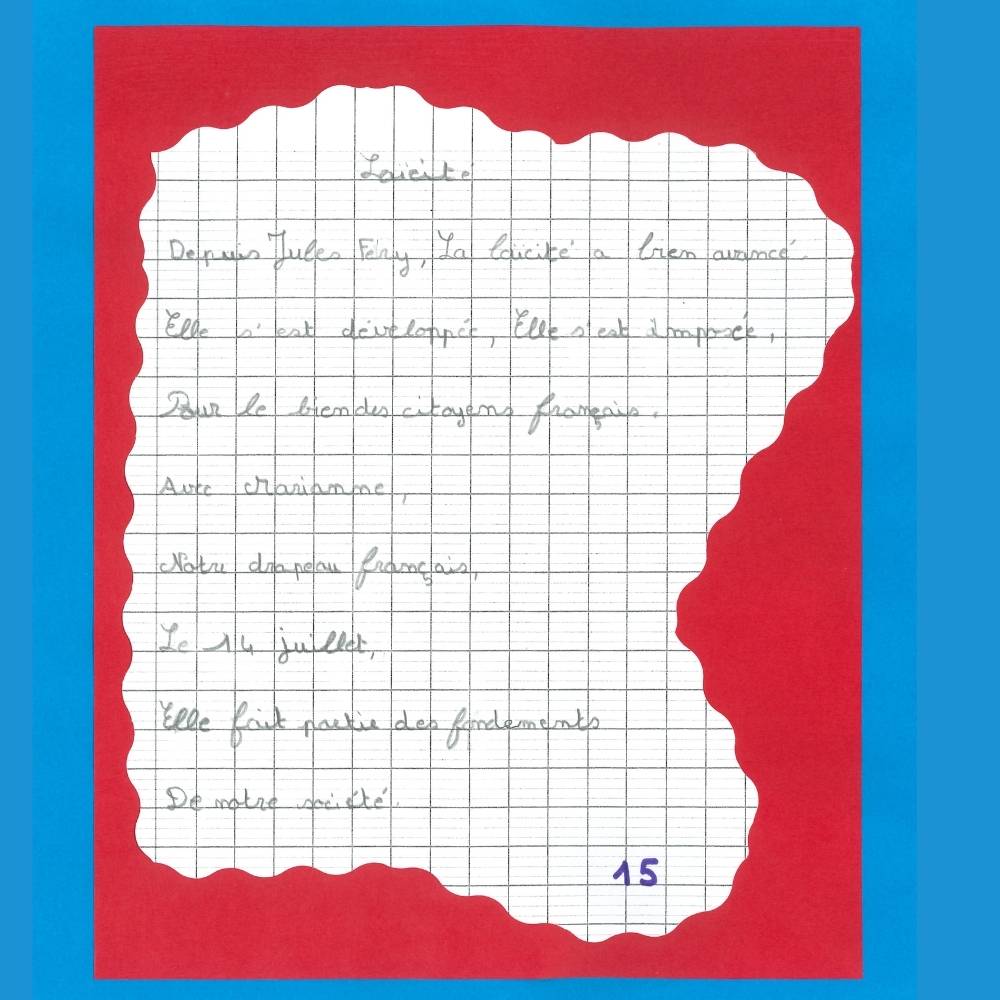 Laïcité
Depuis Jules Féry, La laïcité a bien avancé.
Elle s'est développée, Elle s'est imposée,
Pour le bien des citoyens français.
Avec Marianne,
Notre drapeau français,
Le 14 juillet,
Elle fait partie des fondements
De notre société.
15